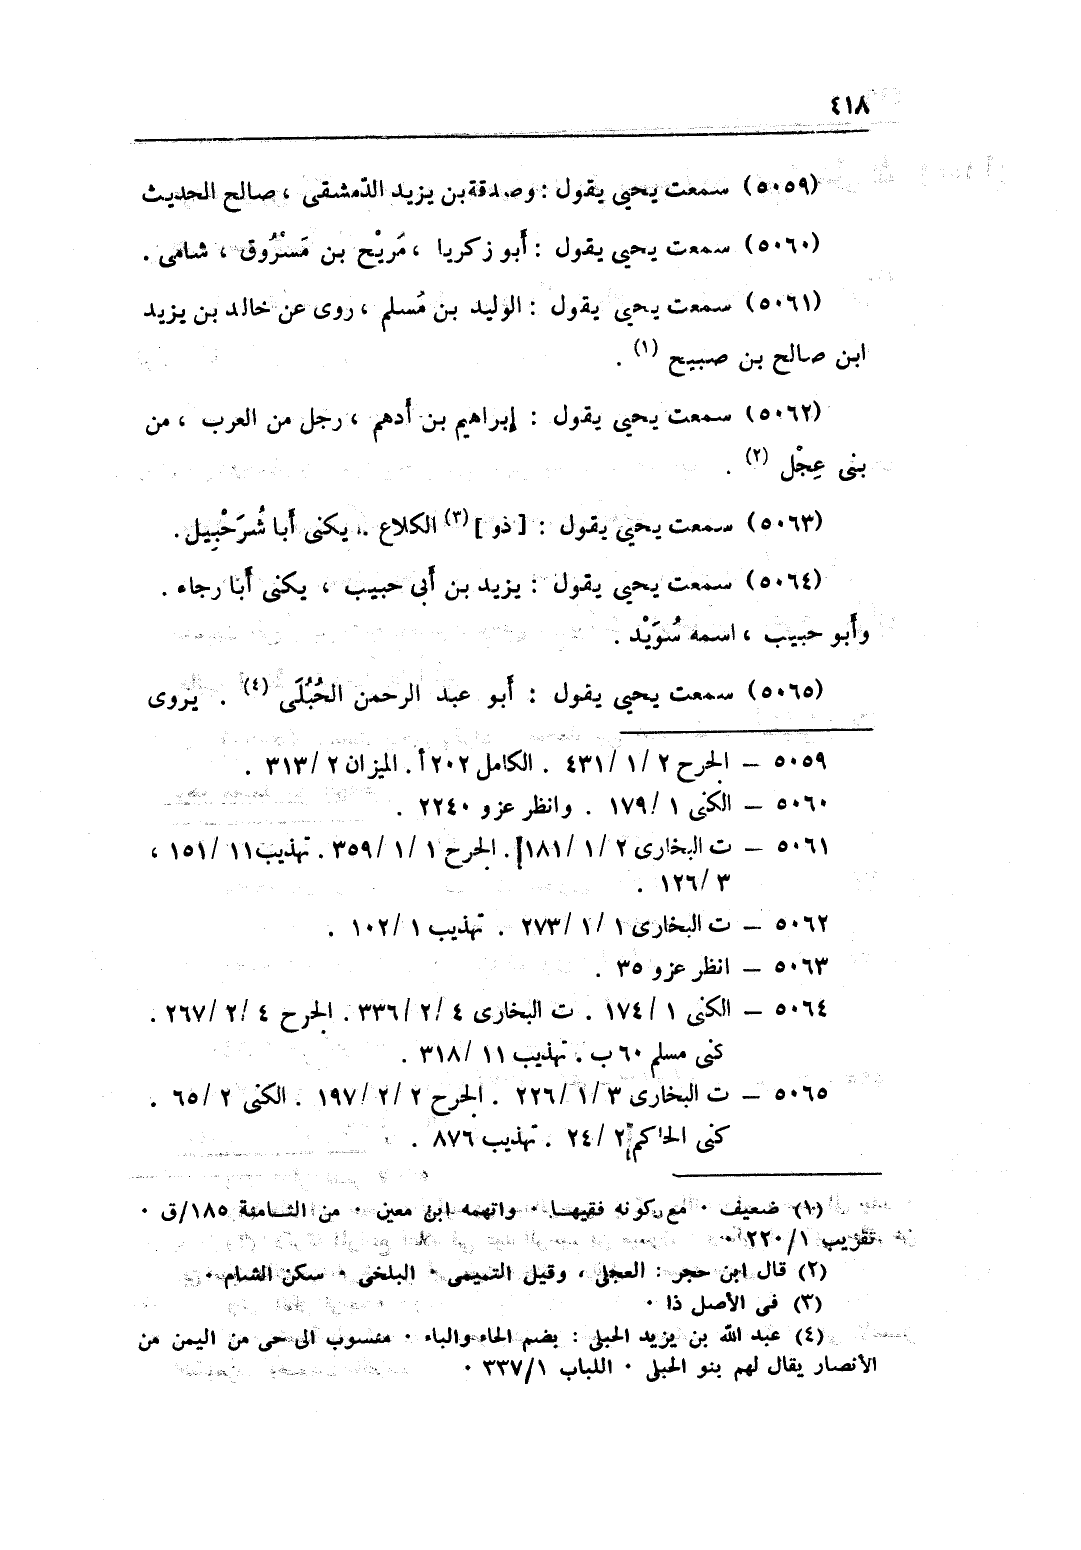 ٤١٨
(٥٠٥٩) سمعت يحيى يقول : وصدقة بن يزيد الدّمشقى ، صالح الحديث
(٥٠٦٠) سمعت يحيى يقول : أَبو زكريا ، مَريْح بن مَسْرُوق ، شامى .
(٥٠٦١) سمعت يحيى يقول : الوليد بن مُسلم ، روى عن خالد بن يزيد
ابن صالح بن صبيح (١) .
(٥٠٦٢) سمعت يحيى يقول : إبراهيم بن أَدهم ، رجل من العرب ، من
بنى عِجْل (٢) .
(٥٠٦٣) سمعت يحيى يقول : [ ذو ] (٣) الكلاع .. يكنى أَبا شُرَحْبِيل .
(٥٠٦٤) سمعت يحيى يقول : يزيد بن أَبى حبيب ، يكنى أَبا رجاء .
وأَبو حبيب ، اسمه سُوَيْد .
(٥٠٦٥) سمعت يحيى يقول : أَبو عبد الرحمن الحُبُلَى (٤) . يروى
٥٠٥٩ – الجرح ٢ /١ /٤٣١ . الكامل ٢٠٢ أ . الميزان ٢ /٣١٣ .
٥٠٦٠ – الكنى ١ /١٧٩ . وانظر عزو ٢٢٤٠ .
٥٠٦١ – ت البخارى ٢ /١ /١٨١ . الجرح ١ /١ /٣٥٩ . تهذيب ١١ /١٥١ ،
٣ /١٢٦ .
٥٠٦٢ – ت البخارى ١ /١ /٢٧٣ . تهذيب ١ /١٠٢ .
٥٠٦٣ – انظر عزو ٣٥ .
٥٠٦٤ – الكنى ١ /١٧٤ . ت البخارى ٤ /٢ /٣٣٦ . الجرح ٤ /٢ /٢٦٧ .
كنى مسلم ٦٠ ب . تهذيب ١١ /٣١٨ .
٥٠٦٥ – ت البخارى ٣ /١ /٢٢٦ . الجرح ٢ /٢ /١٩٧ . الكنى ٢ /٦٥ .
كنى الحاكم ٢ /٢٤ . تهذيب ٨٧٦ .
(١) ضعيف . مع كونه فقيها . واتهمه ابن معين . من الثامنة ١٨٥/ق .
تقريب ٢٢٠/١ .
(٢) قال ابن حجر : العجلى ، وقيل التميمى . البلخى . سكن الشام .
(٣) فى الأصل ذا .
(٤) عبد الله بن يزيد الحبلى : بضم الحاء والباء . منسوب الى حى من اليمن من
الأنصار يقال لهم بنو الحبلى . اللباب ٣٣٧/١ .